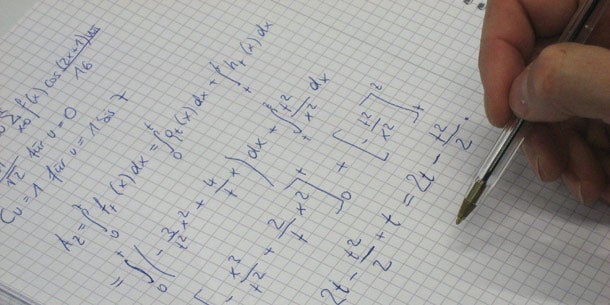 ∑ f(x) cos (2x+1)uπ / 16
√2 für u = 0
Cu = 1 für u = 1 bis 7
A₂ = ∫₀ᵗ fₜ(x) dx = ∫₀ᵗ gₜ(x) dx + ∫ₜ hₜ(x) dx
= ∫₀ᵗ (- 3/t² x² + 4/t x) dx + ∫ₜ t²/x² dx
[- x³/t² + 2/t x²]₀ᵗ + [- t²/x²]ₜ²
2t - t²/2 + t = 2t - t²/2.